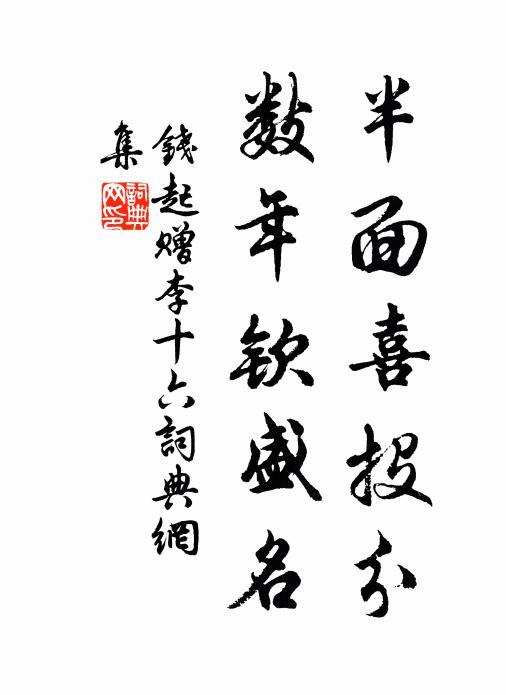 半面喜投分
数年欽盛名
錢起贈李十六詞典網
集
詞典
网印